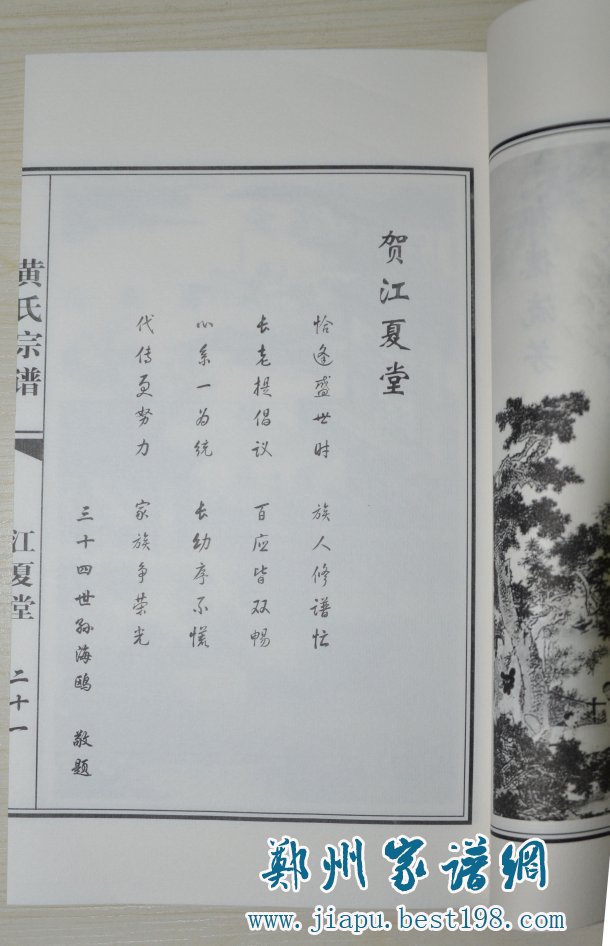 贺江夏堂
恰逢盛世时 族人修谱忙
长老提倡议 百应皆双畅
心系一为统 长幼序不慌
代传更努力 家族争荣光
三十四世孙海鸥 敬题
黄氏宗谱
江夏堂
二十一
郑州家谱網
www.jiapu.best198.com